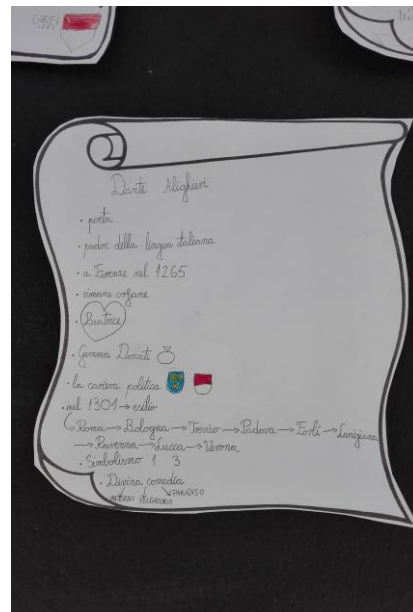 Dante Alighieri
• poeta
• padre della lingua italiana
• a Firenze nel 1265
• rimane orfano
• Beatrice
• Gemma Donati
• la carriera politica
• nel 1301 → esilio
Roma → Bologna → Treviso → Padova → Forlì → Lunigiana
→ Ravenna → Lucca → Verona
• Simbolismo 1 3
• Divina comedia
INFERNO PURGATORIO PARADISO